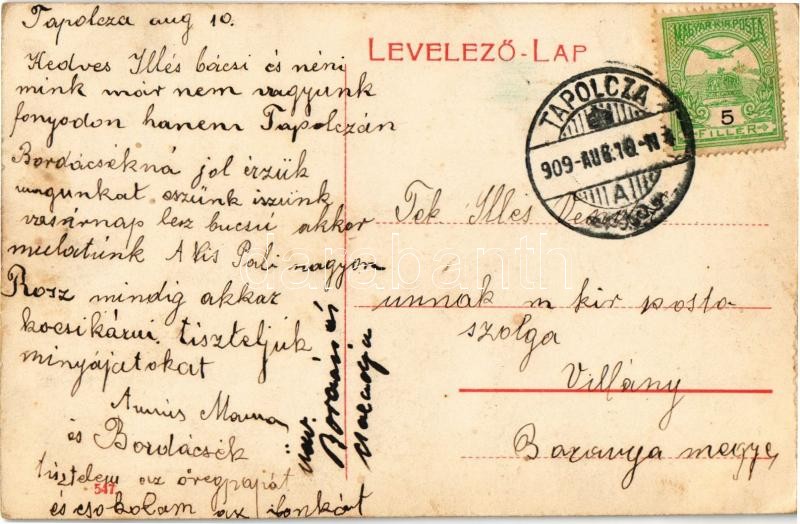 Tapolcza aug 10.
Kedves Illés bácsi és néni
mink már nem vagyunk
fonyodon hanem Tapolczán
Bordácsékná jol érzük
magunkat eszünk iszunk
vasárnap lesz bucsu akkor
mulatunk A kis Pali nagyon
Rosz mindig akkar
kocsikázni. tiszteljük
minyájatokat
Mama
és Bordácsék
tisztelem az öregpapát
és csokolom az ilonkát
547
Bordács és
családja
LEVELEZŐ-LAP
MAGYAR KIR. POSTA
5
FILLER
TAPOLCZA
909-AUG.10-
A
Tek Illés
unnak m kir posta
szolga
Villány
Baranya megye
darabanth